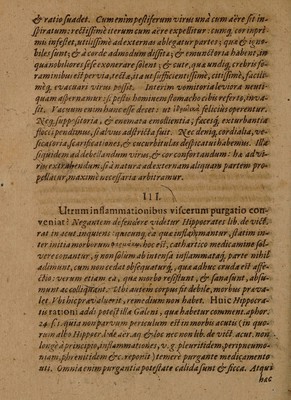 & ratio suadet. Cum enim pestiferum virus unà cum aëre sit in-
spiratum: rectissimè iterum cum aëre expellitur: cumq, cor inpri-
mis infestet, utilissimè ad externas ablegatur partes; quæ &
biles sunt; & à corde admodum dissitæ; & emunctoria habent, in
quæ nobiliores sese exonerare solent; & cute, quà undiq, crebris fo-
raminibus est pervia, tecta, ita ut sufficientissimè, citissimè, faciti-
mèq, evacuari virus possit. Interim vomitoria leviora neuti-
quam aspernamur: si pestis homines stomacho cibis referto, inva-
sit. Vacuum enim hauc esse decet: ut feliciùs operentur.
Neq, suppositoria, & enemata emollientia; facetq, exturbantia
flocci pendimus; si alvus adstricta sit. Nec deniq, cordialia, ve-
sicatoria, scarificationes, & cucurbitulas despicatui habemus. Illa
siquidem ad debellandum virus, & cor confortandum: hæ ad vi-
rim extrahendum, si à natura ad externam aliquam partem pro-
pellatur, maximè necessaria arbitramur.
III.
Utrum inflammationibus viscerum purgatio con-
veniat? Negantem defendere videtur Hippocrates lib. de vict.
rat. in acut. inquiens: quæcunq, ea quæ inflammantur, statim in-
ter initia morborum hoc est, cathartico medicamine sol-
vere conantur, ij non solum ab intensa inflammataq, parte nihil
adimunt, cum non cedat obfirmatuq, quæ adhuc cruda est affe-
ctio: verum etiam ea, quæ morbo resistunt, & sana sunt, absu-
munt ac colliquant. Ubi autem corpus sit debile, morbus præva-
let. Vbi hic prævaluerit, remedium non habet. Huic Hippocra-
tis rationi addi potest illa Galeni, quæ habetur comment. aphor.
24. s. 1. quia non parvum periculum est in morbis acutis (in quo-
rum albo Hippocr. lude aër. aq & loc nec non lib. de vict. acut. non
longè à principio, inflammationes, v. g. pleuritidem, peripneumo-
niam, phrenitidem &c. reponit) temerè purgante medicamento
uti. Omnia enim purgantia potestate calida sunt & sicca. Atqui
hæc